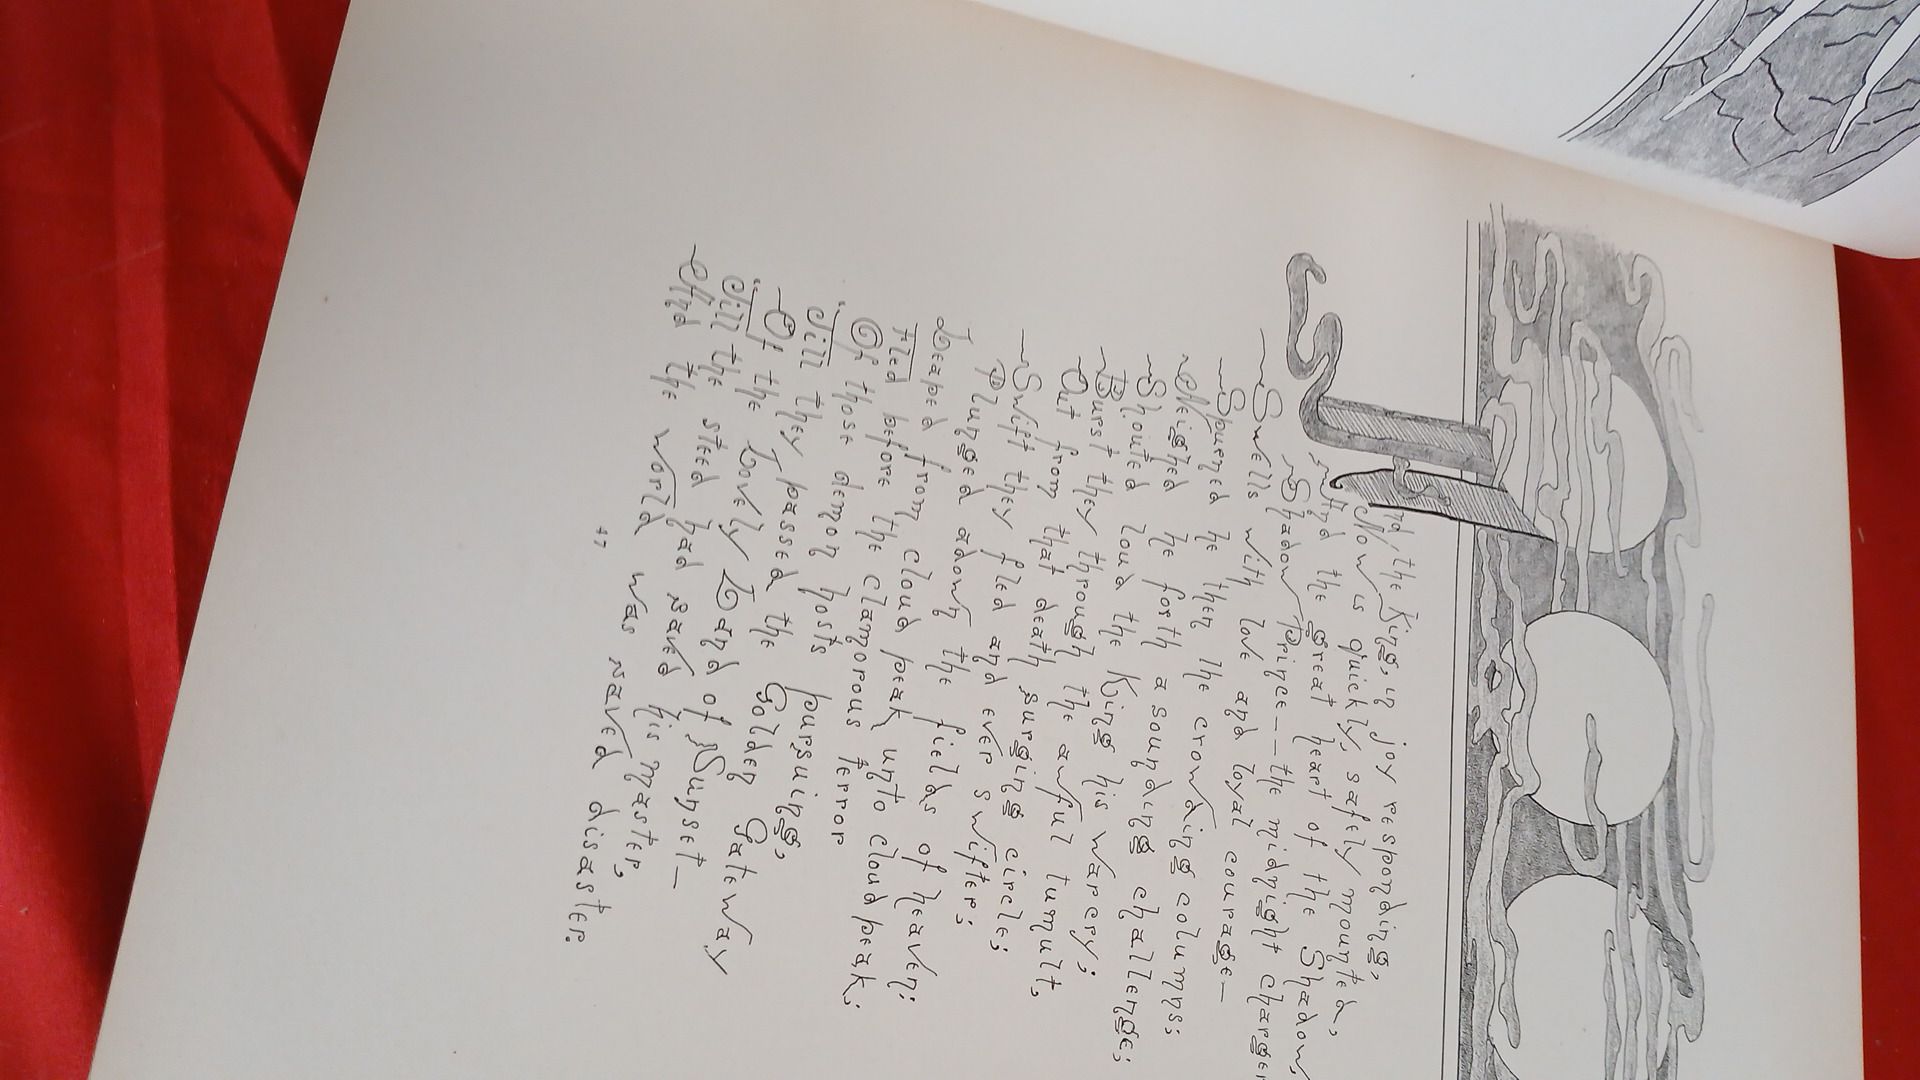 And, the King, in joy responding,
Now is quickly, safely mounted,
And the great heart of the Shadow,
Shadow Prince -- the midnight charger
Swells with love and loyal courage —
Spurned he then the crowding columns;
Neighed he forth a sounding challenge;
Shouted loud the King his warcry;
Burst they through the awful tumult,
Out from that death surging circle;
Swift they fled and ever swifter;
Plunged adown the fields of heaven:
Leaped from cloud peak unto cloud peak;
Fled before the clamorous terror
Of those demon hosts pursuing,
Till they passed the Golden Gateway
Of the Lovely Land of Sunset —
Till the steed had saved his master,
And the world was saved disaster.
47